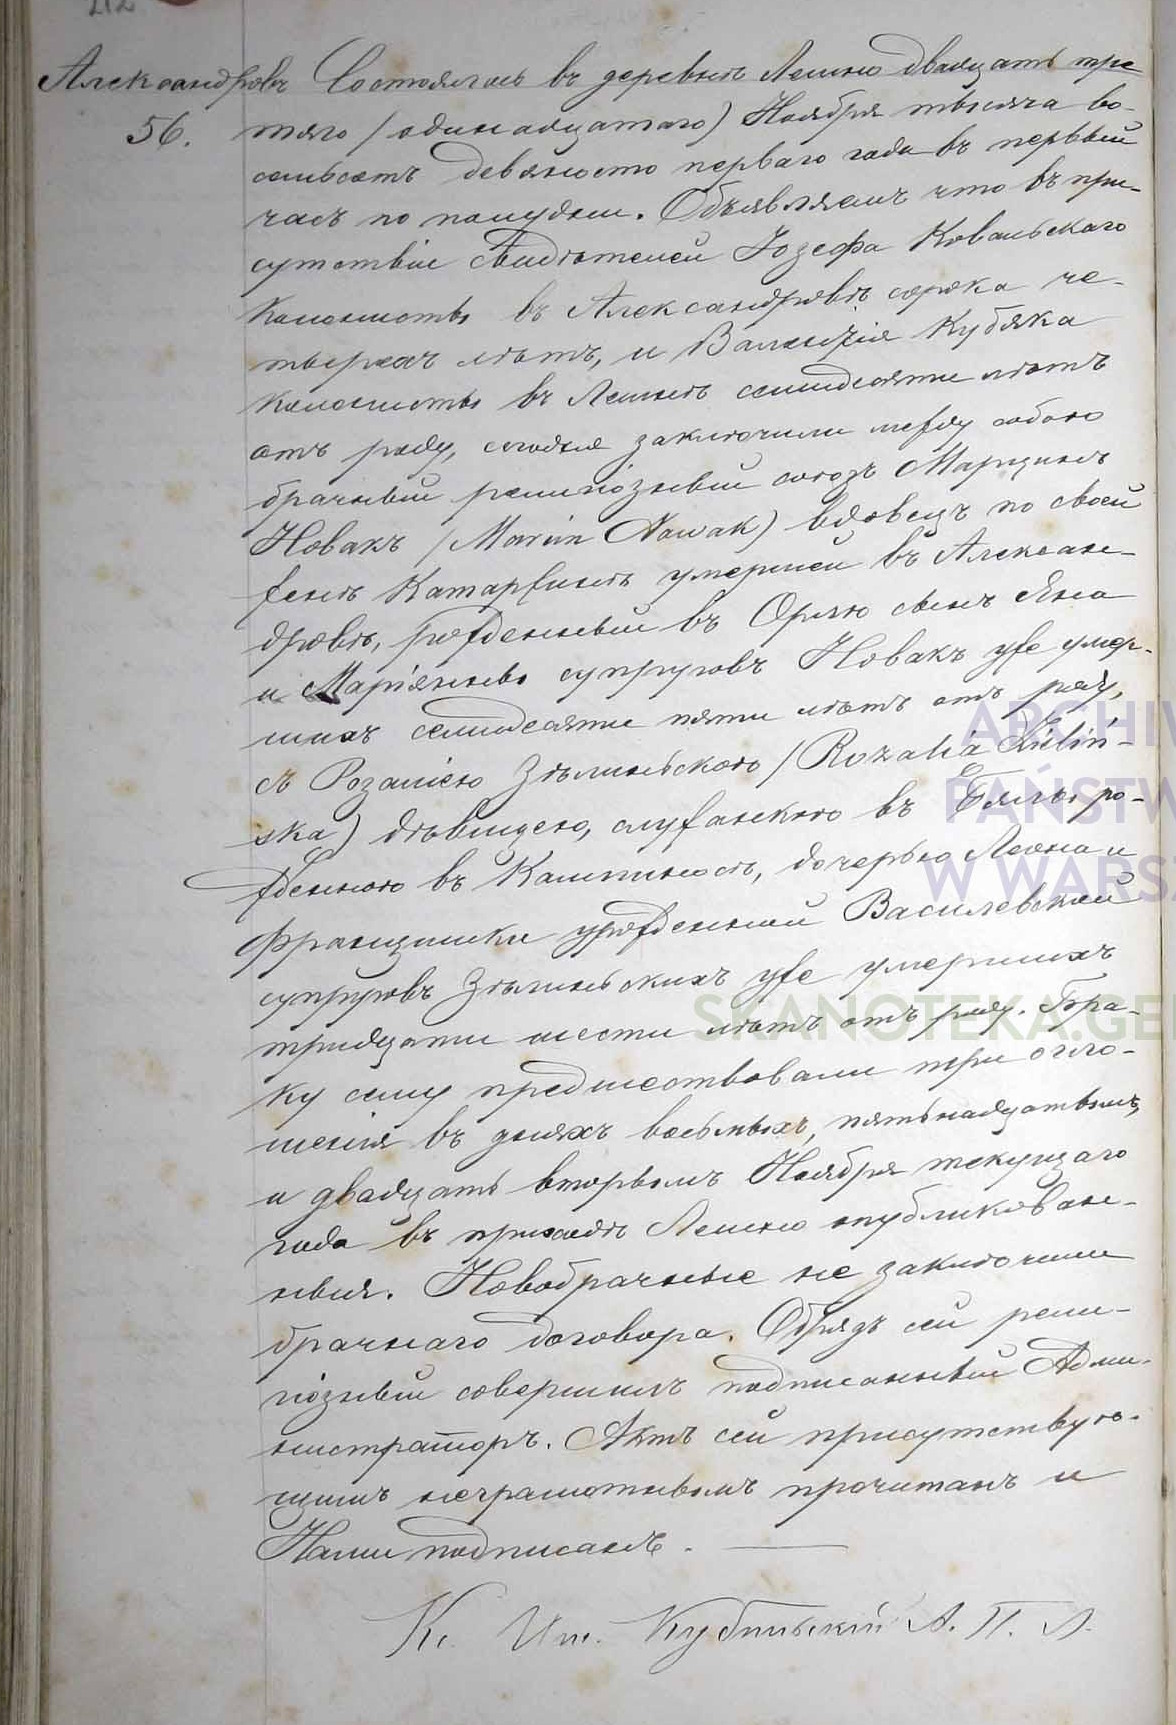 212
Александровъ Состоялось въ деревнѣ Лешно двадцать тре
56. тяго /одинадцатаго/ Ноября тысяча во-
семьсотъ девяносто перваго года въ первый
часъ по полудни. Объявляемъ что въ при-
сутствіи свидѣтелей Іозефа Ковальскаго
колонисты въ Александровѣ сорока че-
тверехъ лѣтъ, и Валенція Кубяка
колонисты въ Лешнѣ семидесяти лѣтъ
отъ роду, сегодня заключили между собою
брачный религіозный союзъ Марцинъ
Новакъ /Marcin Nowak) вдовецъ по своей
женѣ Катаржинѣ умершей въ Алексан-
дровѣ, рожденный въ Орлю сынъ Яна
и Маріянны супруговъ Новакъ уже умер-
шихъ семидесяти пяти лѣтъ отъ роду,
съ Розаліею Зѣлиньскою /Rozalia Zieliń-
ska) дѣвицею, служанкою въ Бялы ро-
жденною въ Кампиносѣ, дочерью Леона и
Францишки урожденной Василевской
супруговъ Зѣлиньскихъ уже умершихъ
тридцати шести лѣтъ отъ роду. Бра-
ку сему предшествовали три огло-
шенія въ дняхъ восьмыхъ, пятьнадцатымъ,
и двадцать вторымъ Ноября текущаго
года въ приходѣ Лешно опубликован-
ныя. Новобрачные не заключили
брачнаго договора. Обрядъ сей рели-
гіозный совершилъ подписанный Адми-
нистраторъ. Актъ сей присутствую-
щимъ неграмотнымъ прочитанъ и
Нами подписанъ.
Кс. А. П. Л.
ARCHIW
PAŃSTW
W WARSZ
SKANOTEKA.GE